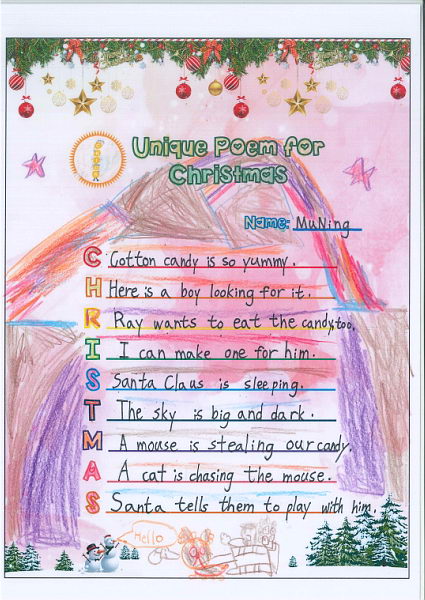 Unique Poem for
Christmas
Name: MuNing
C Cotton candy is so yummy.
H Here is a boy looking for it.
R Ray wants to eat the candy,too.
I I can make one for him.
S Santa Claus is sleeping.
T The sky is big and dark.
M A mouse is stealing our candy.
A A cat is chasing the mouse.
S Santa tells them to play with him.
Hello